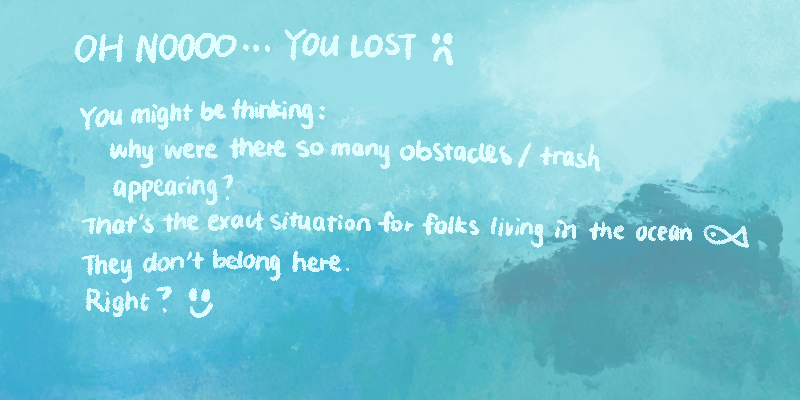 OH NOOOO... YOU LOST :(
You might be thinking:
why were there so many obstacles / trash
appearing?
That's the exact situation for folks living in the ocean
They don't belong here.
Right? :)